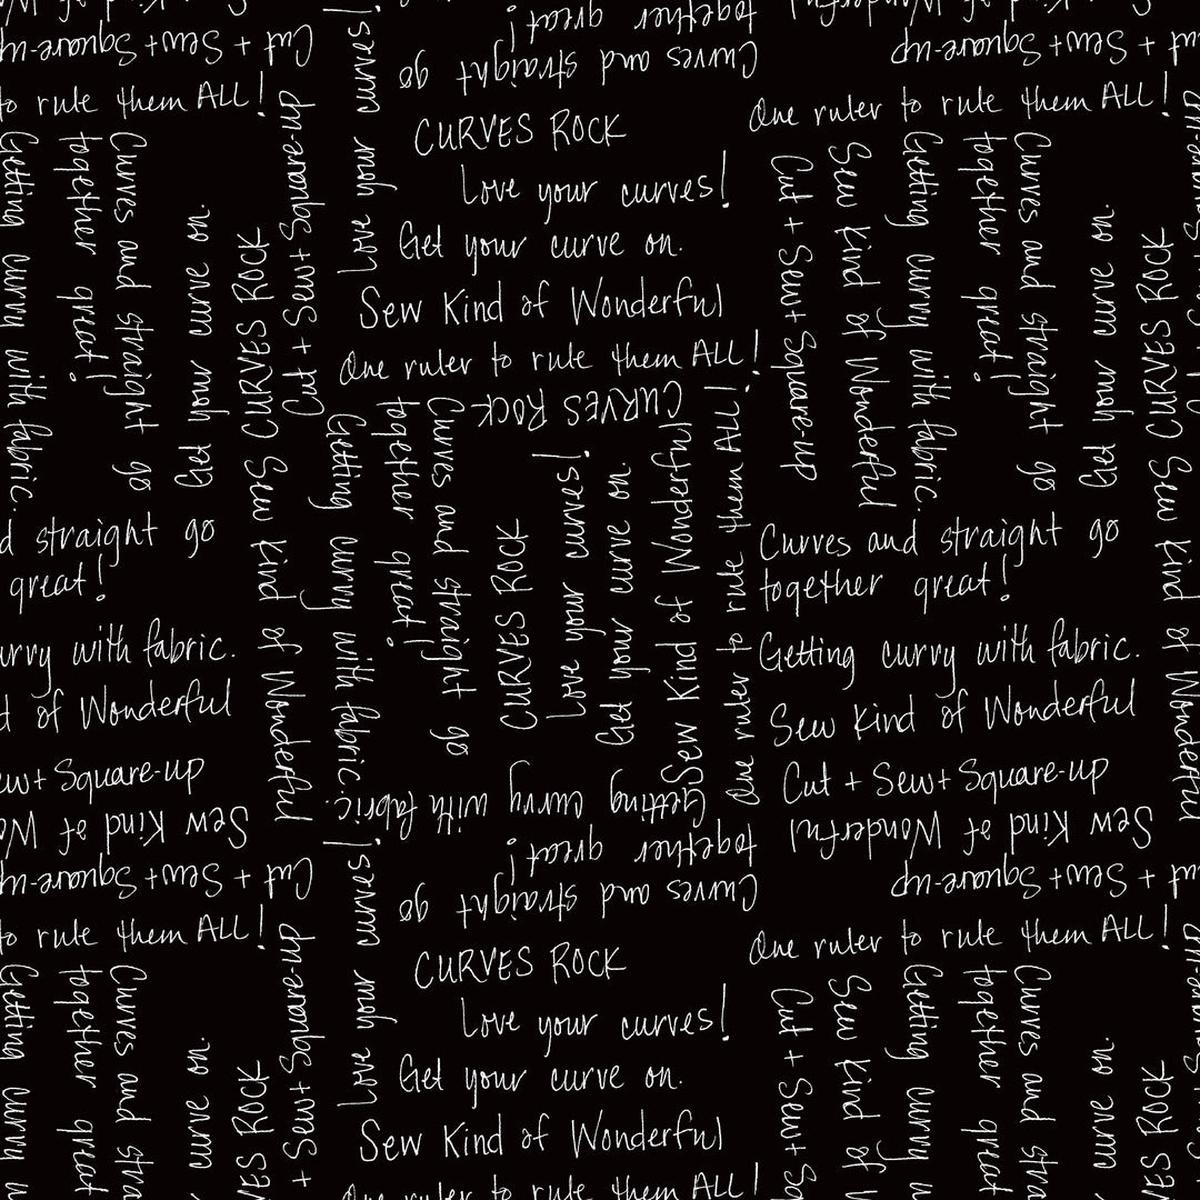 together great!
Curves and straight go
Cut + Sew + Square-up
to rule them ALL!
Curves and straight go
together great!
Getting curvy with fabric.
Get your curve on.
CURVES ROCK
Cut + Sew + Square-up
Sew Kind of Wonderful
Love your curves!
CURVES ROCK
Love your curves!
Get your curve on.
Sew Kind of Wonderful
One ruler to rule them ALL!
CURVES ROCK
Curves and straight go
together great!
Getting curvy with fabric.
CURVES ROCK
Love your curves!
Get your curve on.
Sew Kind of Wonderful
One ruler to rule them ALL!
Getting curvy with fabric.
Cut + Sew + Square-up
One ruler to rule them ALL!
Cut + Sew + Square-up
Sew Kind of Wonderful
Getting curvy with fabric.
Curves and straight go
together great!
Get your curve on.
CURVES ROCK
Sew Kind of Wonderful
straight go
great!
with fabric.
of Wonderful
Square-up
Sew Kind of
Curves and straight go
together great!
Getting curvy with fabric.
Sew Kind of Wonderful
Cut + Sew + Square-up
Sew Kind of Wonderful
Cut + Sew + Square-up
together great!
Curves and straight go
Cut + Sew + Square-up
to rule them ALL!
Curves and
together great
Getting curvy
curve on.
ROCK
+ Sew + Square-up
Love your curves!
CURVES ROCK
Love your curves!
Get your curve on.
Sew Kind of Wonderful
One ruler to rule them ALL!
One ruler to rule them ALL!
Cut + Sew +
Sew Kind of
Getting curvy
together great
Curves and
curve on.
ROCK